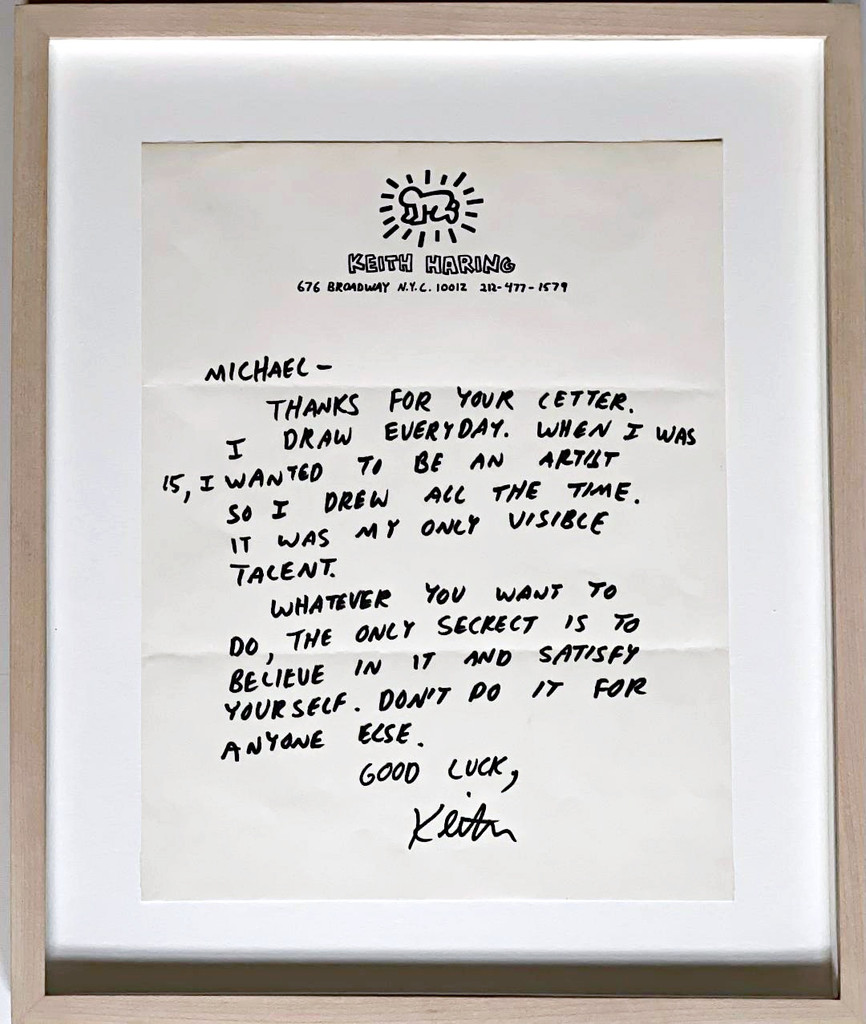 KEITH HARING
676 BROADWAY N.Y.C. 10012 212-477-1579
MICHAEL –
THANKS FOR YOUR LETTER.
I DRAW EVERYDAY. WHEN I WAS
15, I WANTED TO BE AN ARTIST
SO I DREW ALL THE TIME.
IT WAS MY ONLY VISIBLE
TALENT.
WHATEVER YOU WANT TO
DO, THE ONLY SECRECT IS TO
BELIEVE IN IT AND SATISFY
YOURSELF. DON'T DO IT FOR
ANYONE ELSE.
GOOD LUCK,
Keith